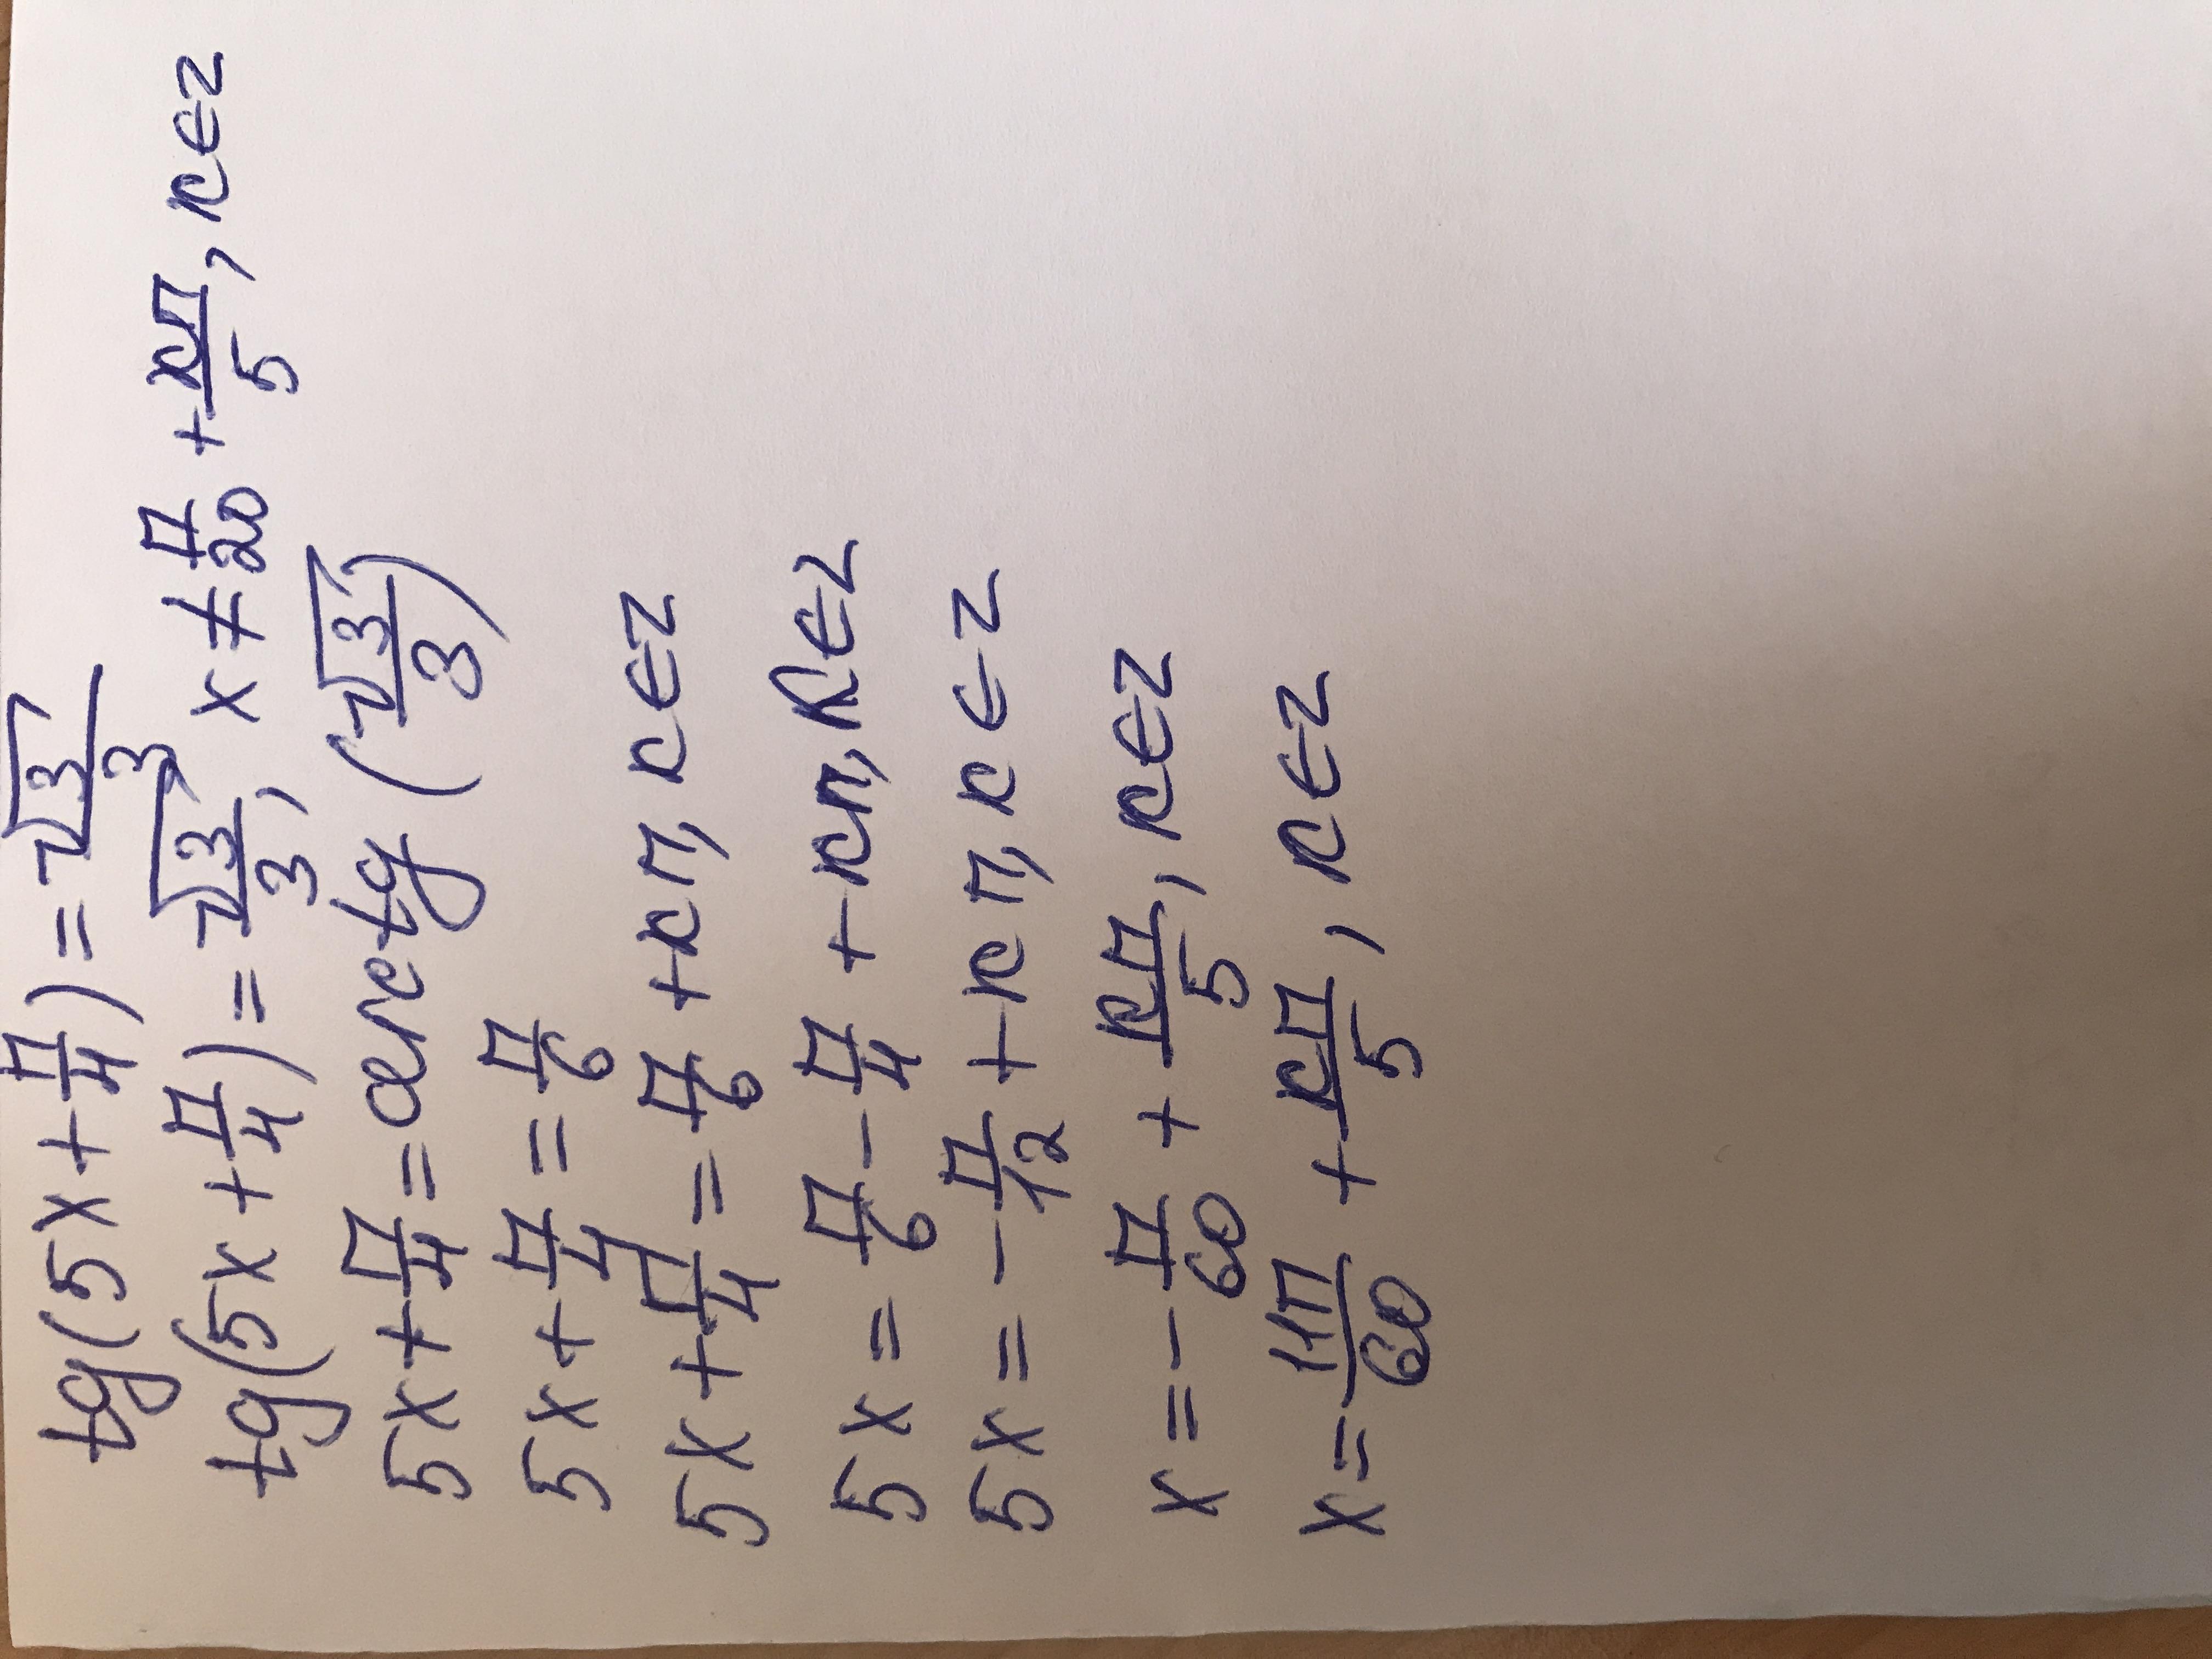 tg(5x + π/4) = √3/3
tg(5x + π/4) = √3/3, x ≠ π/20 + kπ/5, k∈Z
5x + π/4 = arctg (√3/3)
5x + π/4 = π/6
5x + π/4 = π/6 + kπ, k∈Z
5x = π/6 - π/4 + kπ, k∈Z
5x = - π/12 + kπ, k∈Z
x = - π/60 + kπ/5, k∈Z
x = 11π/60 + kπ/5, k∈Z